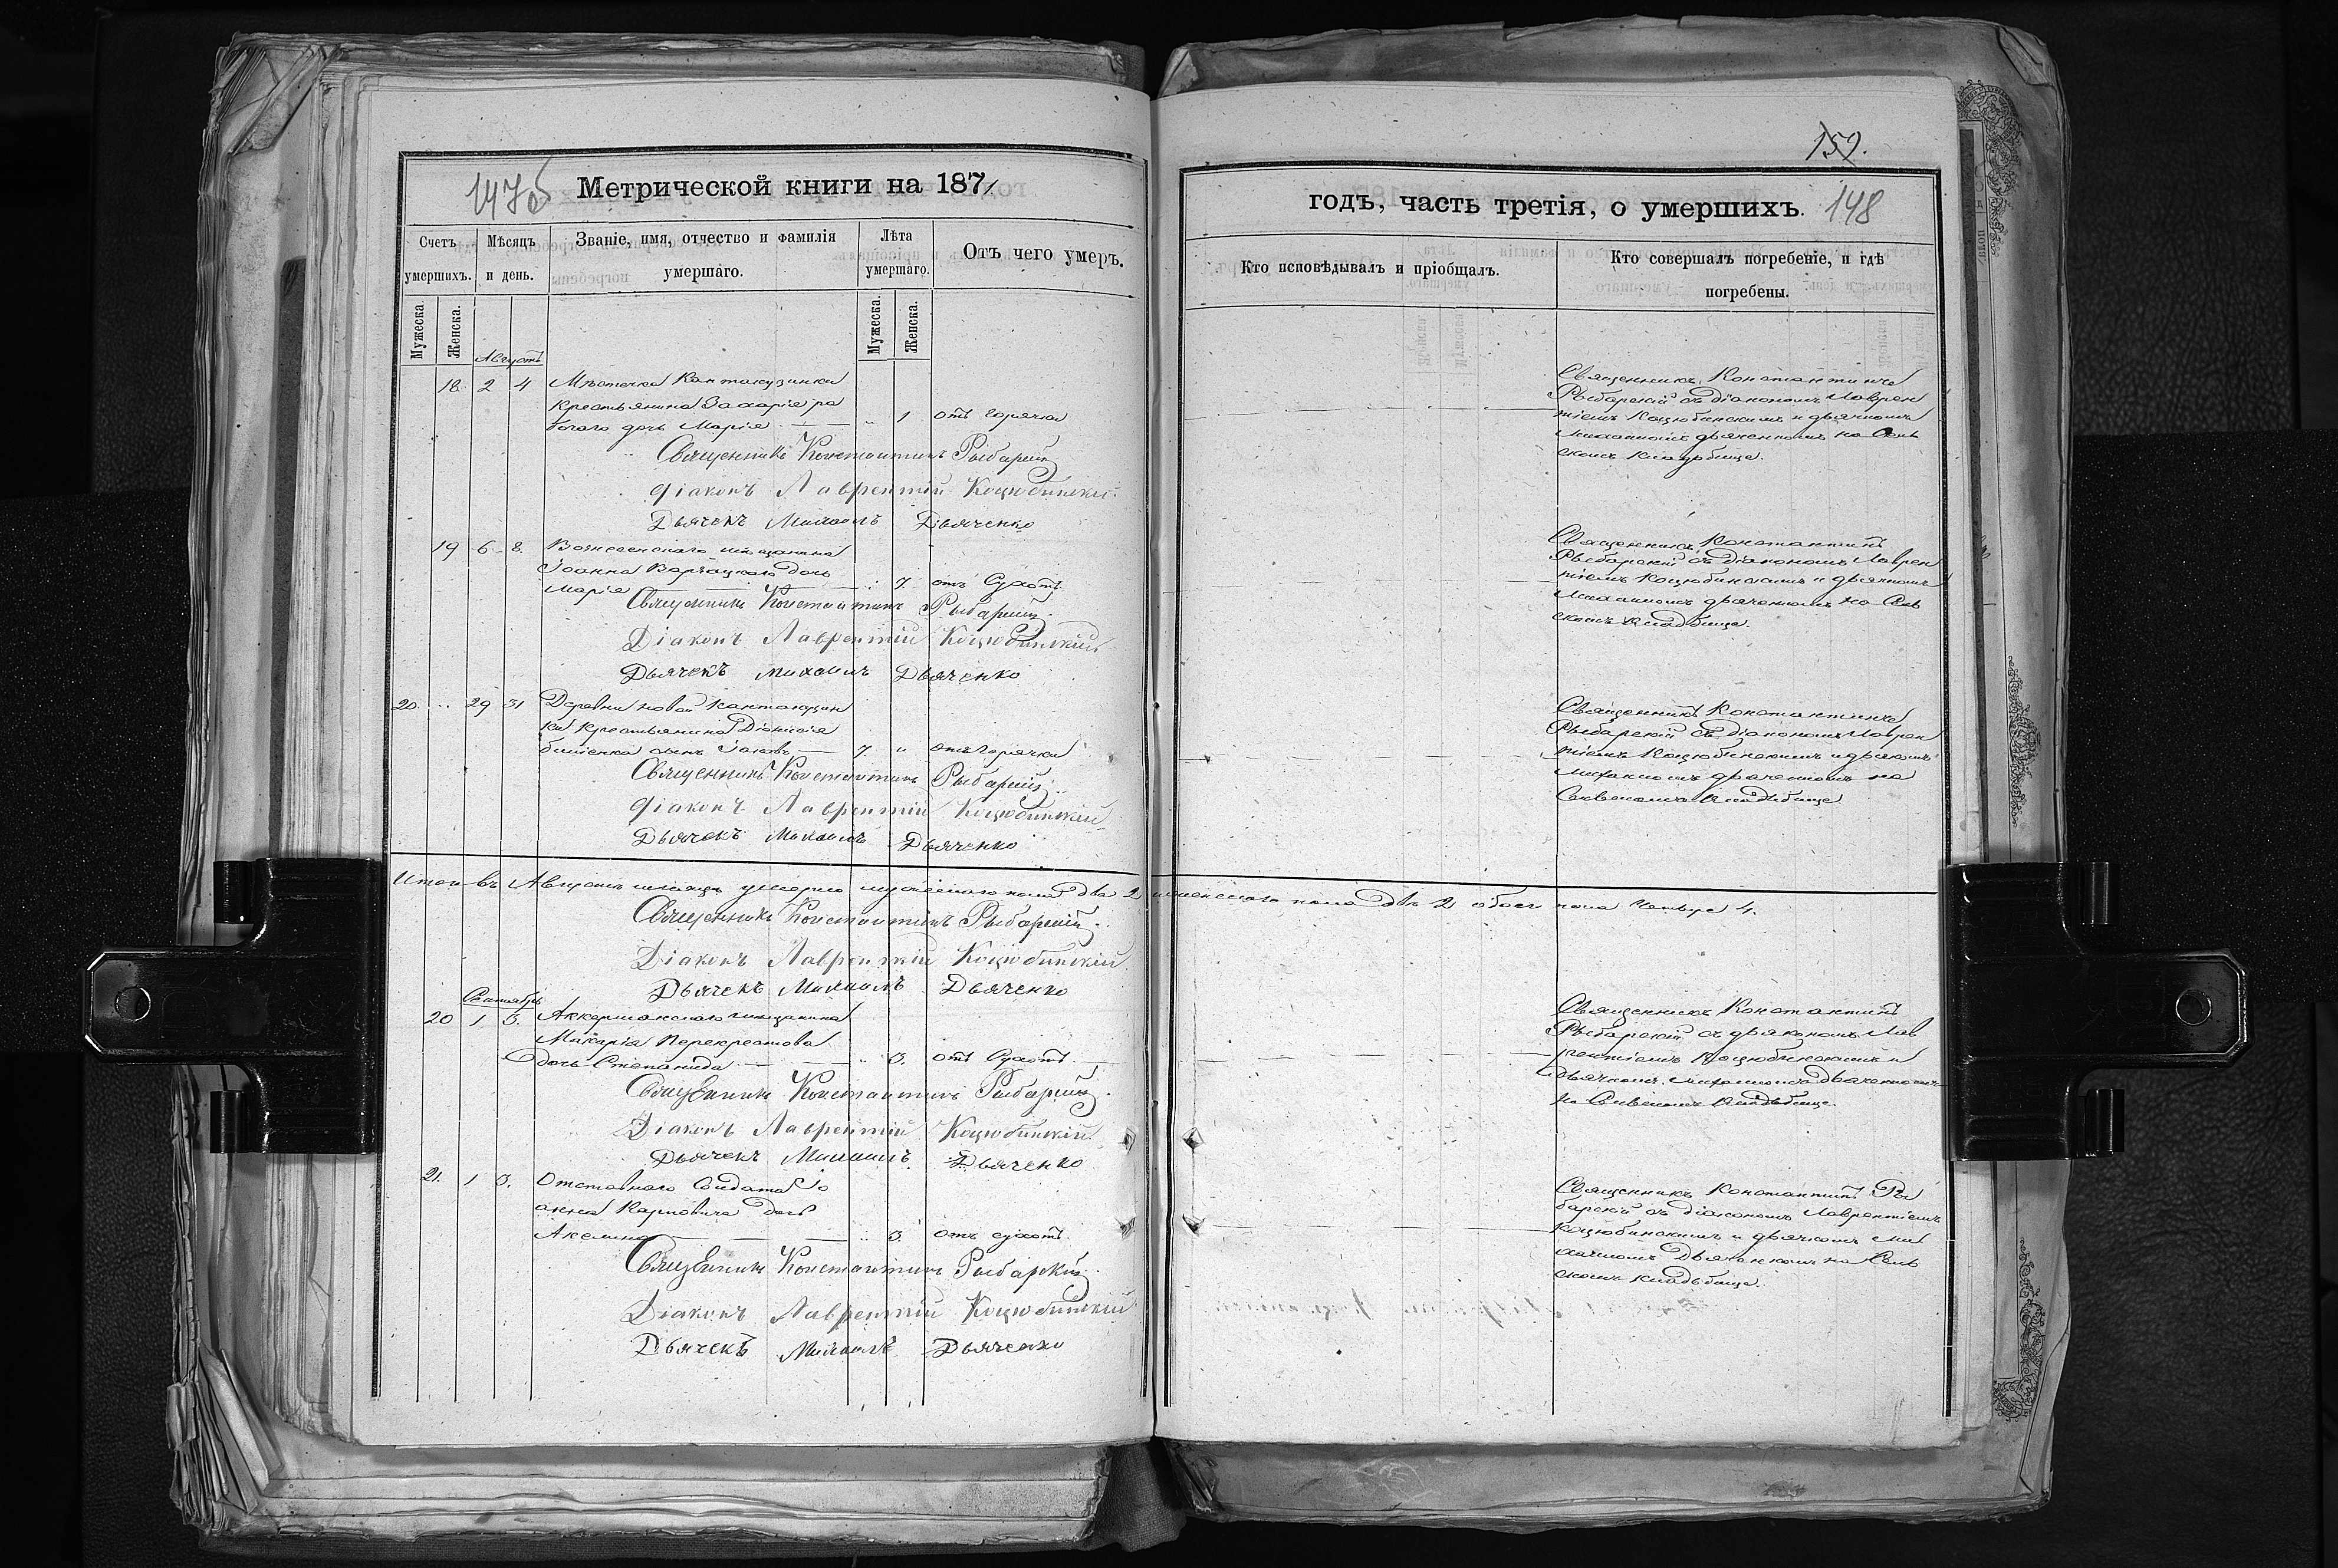 159.
147об
Метрической книги на 1871
годъ, часть третія, о умершихъ. 148
Счетъ умершихъ.
Мѣсяцъ и день.
Званіе, имя, отчество и фамилія умершаго.
Лѣта умершаго.
Отъ чего умеръ.
Кто исповѣдывалъ и пріобщалъ.
Кто совершалъ погребеніе, и гдѣ погребены.
Мужеска.
Женска.
Мужеска.
Женска.
Августъ
18. 2 4 Мѣстечка Кантакузинки
крестьянина Захарія ра
бочаго дочь Марія — — „ 1 отъ горячки
Священникъ Константинъ
Рыбарскій съ діакономъ Лаврен
тіемъ Коцюбинскимъ и дьячкомъ
Михаиломъ Дьяченкомъ на Сель
скомъ кладбище.
Священникъ Константинъ Рыбарскій
Діаконъ Лаврентій Коцюбинскій
Дьячекъ Михаилъ Дьяченко
19 6 8. Вознесенскаго мѣщанина
Іоанна дочь
Марія — — „ 7. отъ Сухотъ
Священникъ Константинъ
Рыбарскій съ діакономъ Лаврен
тіемъ Коцюбинскимъ и дьячкомъ
Михаиломъ Дьяченкомъ на Сель
скомъ кладбище.
Священникъ Константинъ Рыбарскій
Діаконъ Лаврентій Коцюбинскій
Дьячекъ Михаилъ Дьяченко
20. „ 29 31 Деревни новой Кантакузин
ки крестьянина Діонисія
сынъ Іаковъ — 7 „ отъ горячки
Священникъ Константинъ
Рыбарскій съ діакономъ Лаврен
тіемъ Коцюбинскимъ и дьячкомъ
Михаиломъ Дьяченкомъ на
Сельскомъ кладбище
Священникъ Константинъ Рыбарскій
Діаконъ Лаврентій Коцюбинскій
Дьячекъ Михаилъ Дьяченко
Итого въ Августѣ мѣсяцѣ умерло мужескаго пола два 2 женескаго пола двѣ 2 обоего пола четыре 4.
Священникъ Константинъ Рыбарскій
Діаконъ Лаврентій Коцюбинскій
Дьячекъ Михаилъ Дьяченко
Сентябрь
20 1 3. Аккерманскаго мѣщанина
Макарія Перекрестова
дочь Степанида — — „ 3. отъ Сухотъ
Священникъ Константинъ
Рыбарскій съ дьякономъ Лав
рентіемъ Коцюбинскимъ и
Дьячкомъ Михаиломъ Дьяченкомъ
на Сельскомъ кладбище.
Священникъ Константинъ Рыбарскій
Діаконъ Лаврентій Коцюбинскій
Дьячекъ Михаилъ Дьяченко
21. 1 3. Отставнаго Солдата Іо
анна Карповича дочь
Акелина — — „ 3. отъ сухотъ
Священникъ Константинъ Ры
барскій съ діакономъ Лаврентіемъ
Коцюбинскимъ и дьячкомъ Ми
хаиломъ Дьяченкомъ на Сель
скомъ кладбище.
Священникъ Константинъ Рыбарскій
Діаконъ Лаврентій Коцюбинскій
Дьячекъ Михаилъ Дьяченко